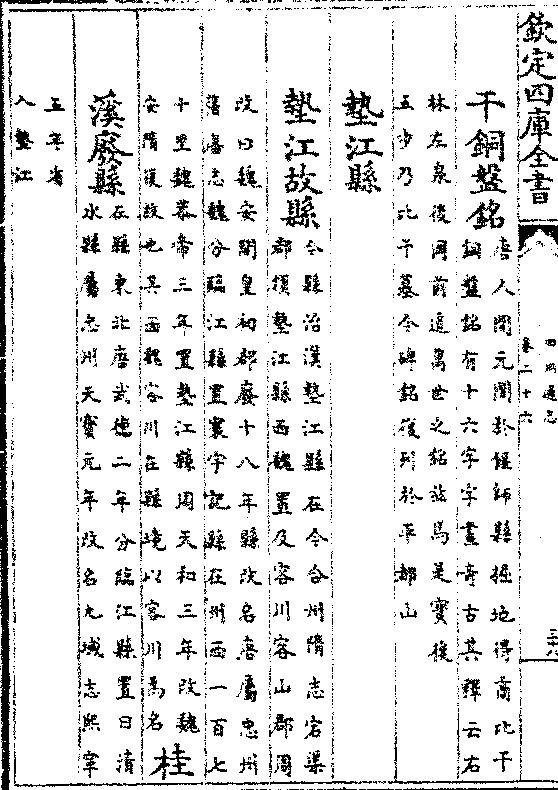 欽定四庫全書
四川通志
卷二十六
干銅盤銘
唐人開元間於偃師縣掘地得商比干
銅盤銘有十六字字畫奇古其釋云右
林左泉後岡前道萬世之銘茲焉是寶後
五步乃比干墓今碑銘復列於平都山
墊江縣
墊江故縣
今縣治漢墊江縣在今合州隋志宕渠
郡領墊江縣西魏置及容川容山郡周
改曰魏安開皇初郡廢十八年縣改名唐屬忠州
舊唐志魏分臨江縣置寰宇記縣在州西一百七
十里魏恭帝三年置墊江縣周天和三年改魏
安隋復故也其西魏容川在縣境以容川爲名
桂
溪廢縣
在縣東北唐武德二年分臨江縣置曰清
水縣屬忠州天寶元年改名九域志熙寧
五年省
入墊江